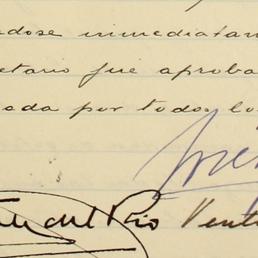 ndose inmediatam
etario fue aproba
ada por todos lo
del Rio Vent